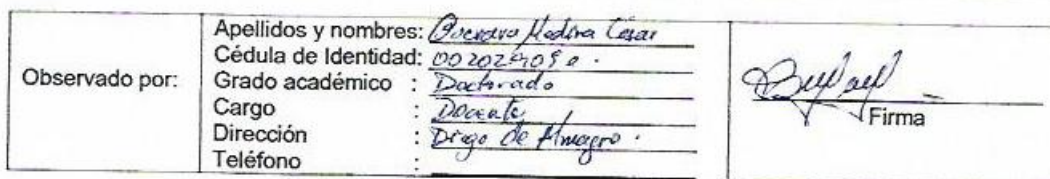 Observado por:
Apellidos y nombres: Medina César
Cédula de Identidad:
Grado académico : Doctorado
Cargo : Docente
Dirección : Diego de Almagro .
Teléfono :
Firma